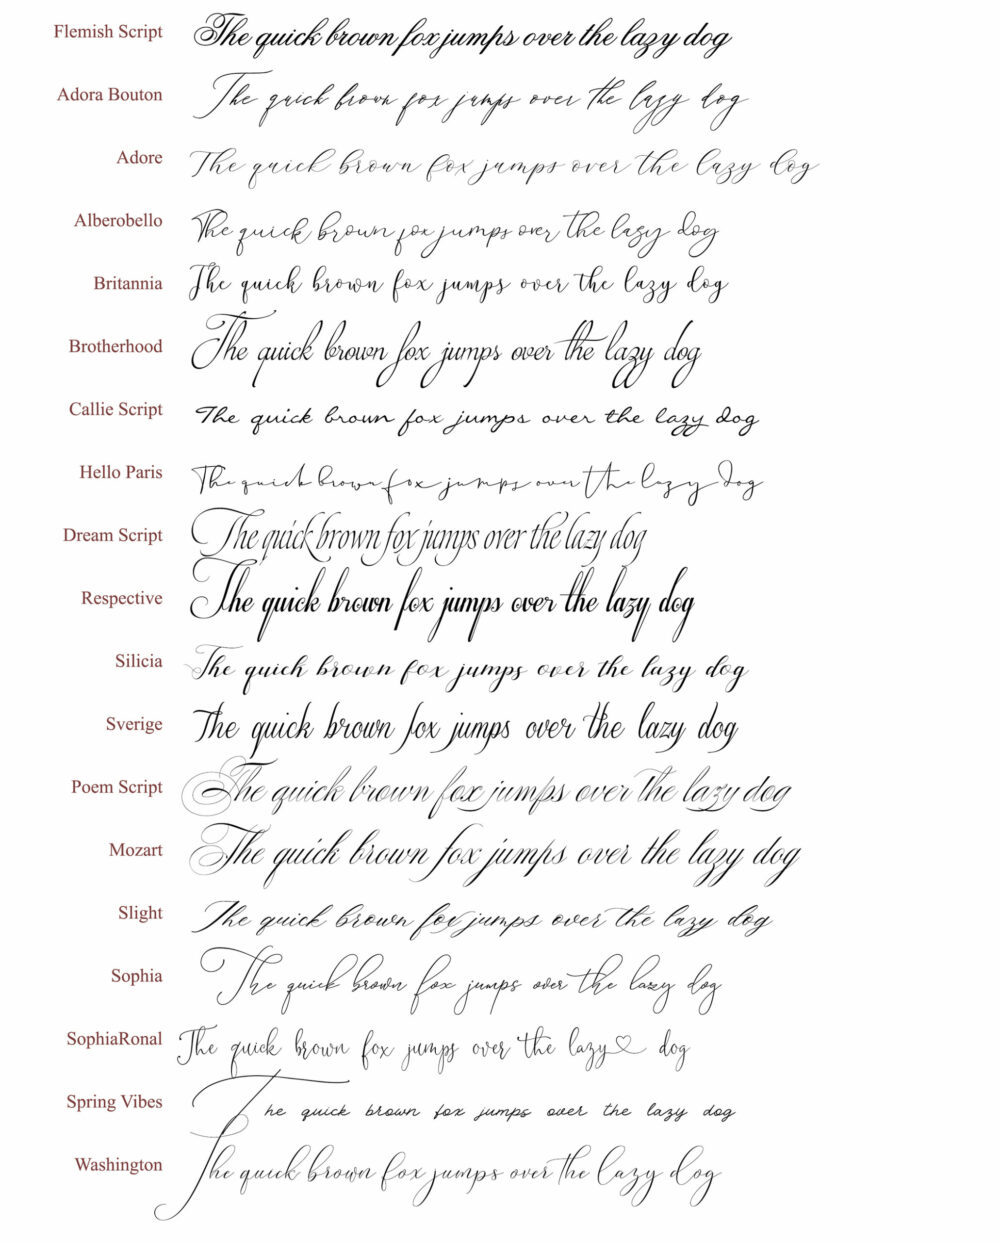 Flemish Script The quick brown fox jumps over the lazy dog
Adora Bouton The quick brown fox jumps over the lazy dog
Adore The quick brown fox jumps over the lazy dog
Alberobello The quick brown fox jumps over the lazy dog
Britannia The quick brown fox jumps over the lazy dog
Brotherhood The quick brown fox jumps over the lazy dog
Callie Script The quick brown fox jumps over the lazy dog
Hello Paris The quick brown fox jumps over the lazy dog
Dream Script The quick brown fox jumps over the lazy dog
Respective The quick brown fox jumps over the lazy dog
Silicia The quick brown fox jumps over the lazy dog
Sverige The quick brown fox jumps over the lazy dog
Poem Script The quick brown fox jumps over the lazy dog
Mozart The quick brown fox jumps over the lazy dog
Slight The quick brown fox jumps over the lazy dog
Sophia The quick brown fox jumps over the lazy dog
SophiaRonal The quick brown fox jumps over the lazy dog
Spring Vibes The quick brown fox jumps over the lazy dog
Washington The quick brown fox jumps over the lazy dog